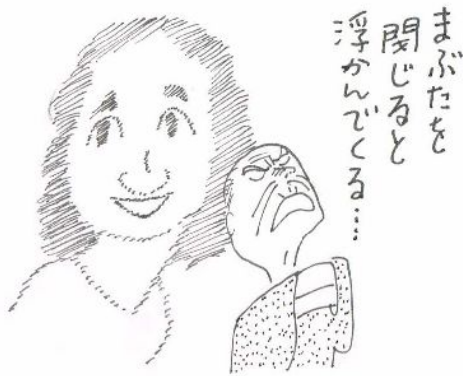 まぶたを
閉じると
浮かんでくる…